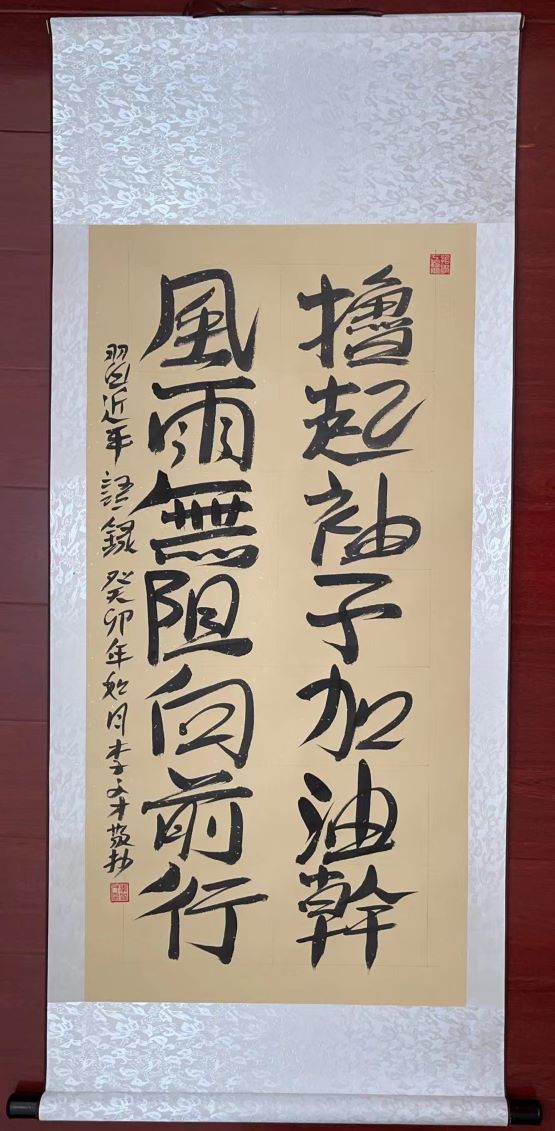 擼起袖子加油幹
風雨無阻向前行
習近平語錄 癸卯年始月李文才敬抄